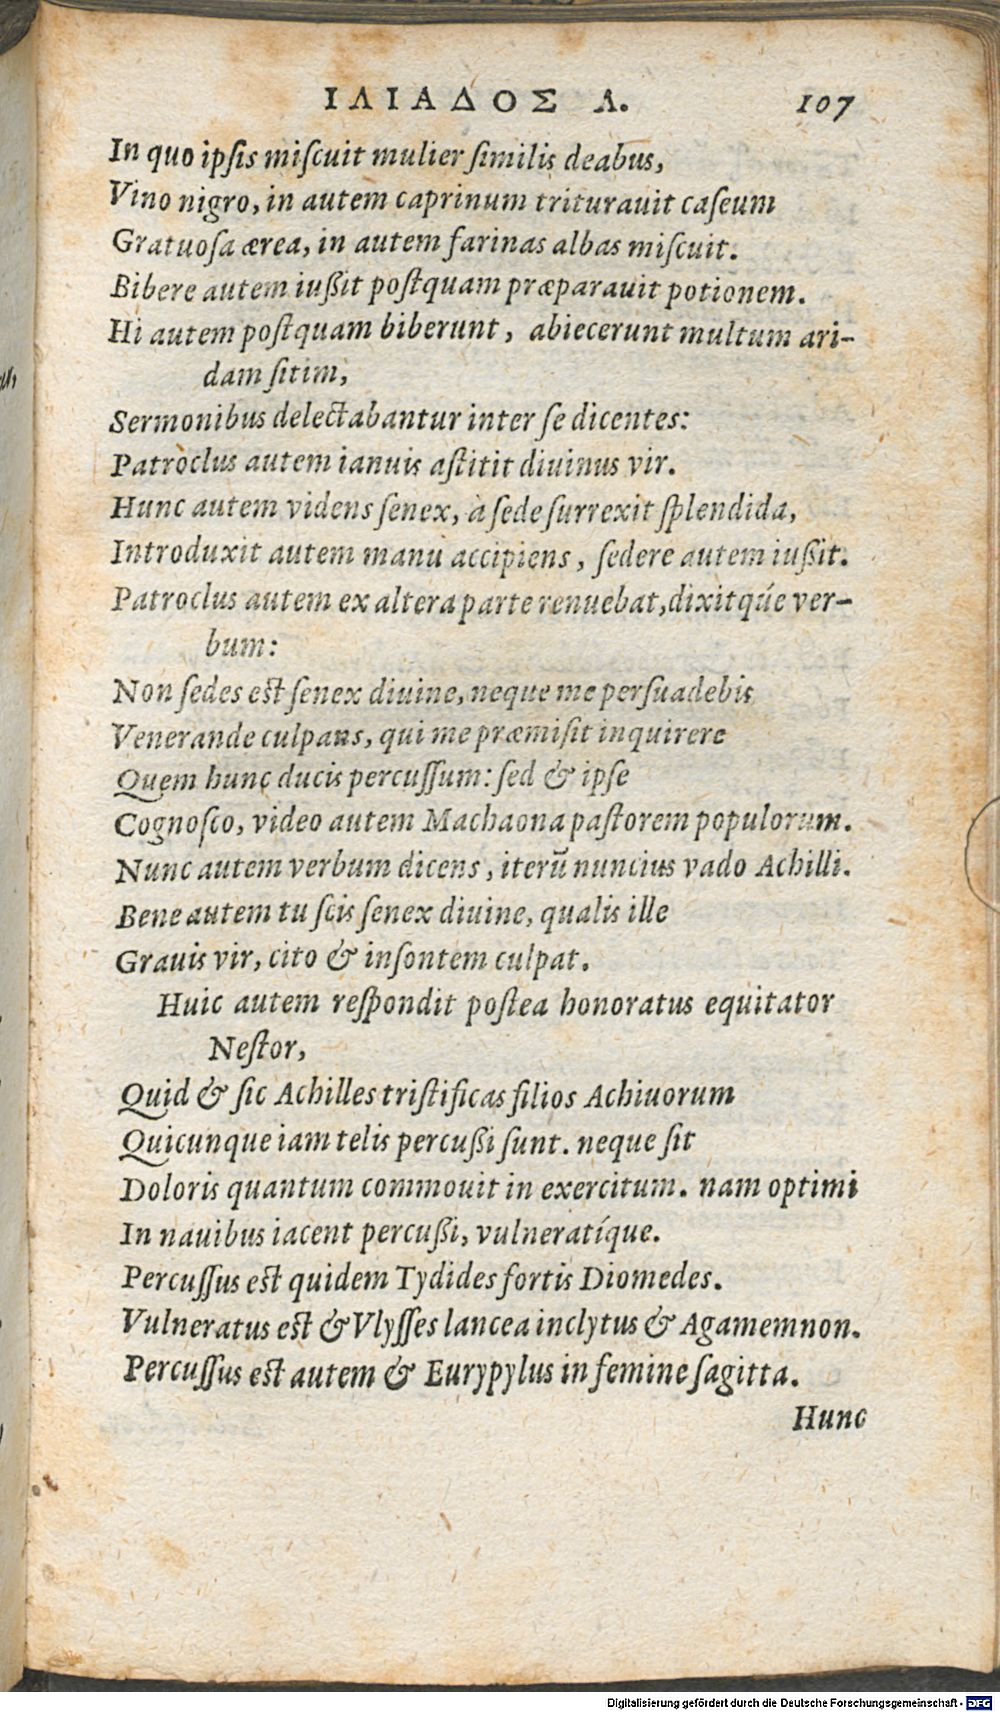 ΙΛΙΑΔΟΣ Λ. 107
In quo ipſis miſcuit mulier ſimilis deabus,
Vino nigro, in autem caprinum triturauit caſeum
Gratuoſa ærea, in autem farinas albas miſcuit.
Bibere autem iußit poſtquam præparauit potionem.
Hi autem poſtquam biberunt, abiecerunt multum ari-
dam ſitim,
Sermonibus delectabantur inter ſe dicentes:
Patroclus autem ianuis aſtitit diuinus vir.
Hunc autem videns ſenex, à ſede ſurrexit ſplendida,
Introduxit autem manu accipiens, ſedere autem iußit.
Patroclus autem ex altera parte renuebat, dixitqúe ver-
bum:
Non ſedes eſt ſenex diuine, neque me perſuadebis
Venerande culpans, qui me præmiſit inquirere
Quem hunc ducis percuſſum: ſed & ipſe
Cognoſco, video autem Machaona paſtorem populorum.
Nunc autem verbum dicens, iterũ nuncius vado Achilli.
Bene autem tu ſcis ſenex diuine, qualis ille
Grauis vir, cito & inſontem culpat.
Huic autem reſpondit poſtea honoratus equitator
Neſtor,
Quid & ſic Achilles triſtificas filios Achiuorum
Quicunque iam telis percußi ſunt. neque ſit
Doloris quantum commouit in exercitum. nam optimi
In nauibus iacent percußi, vulneratíque.
Percuſſus eſt quidem Tydides fortis Diomedes.
Vulneratus eſt & Vlyſſes lancea inclytus & Agamemnon.
Percuſſus eſt autem & Eurypylus in femine ſagitta.
Hunc
Digitalisierung gefördert durch die Deutsche Forschungsgemeinschaft - DFG